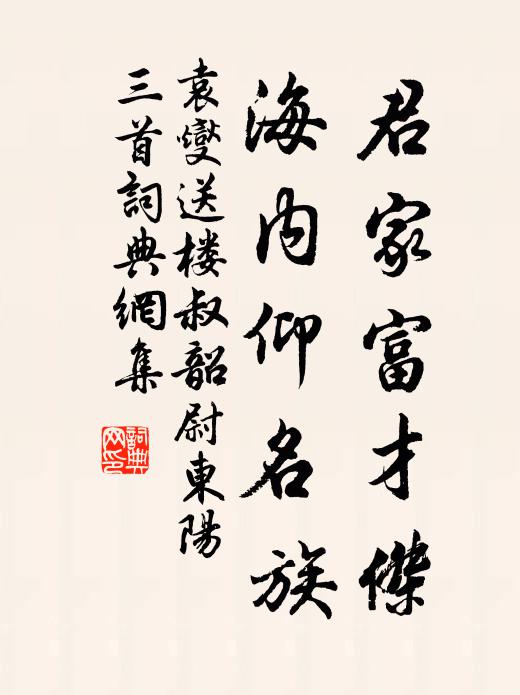 君家富才傑
海内仰名族
袁燮送楼叔韶尉東陽
三首詞典網集
詞典
网印